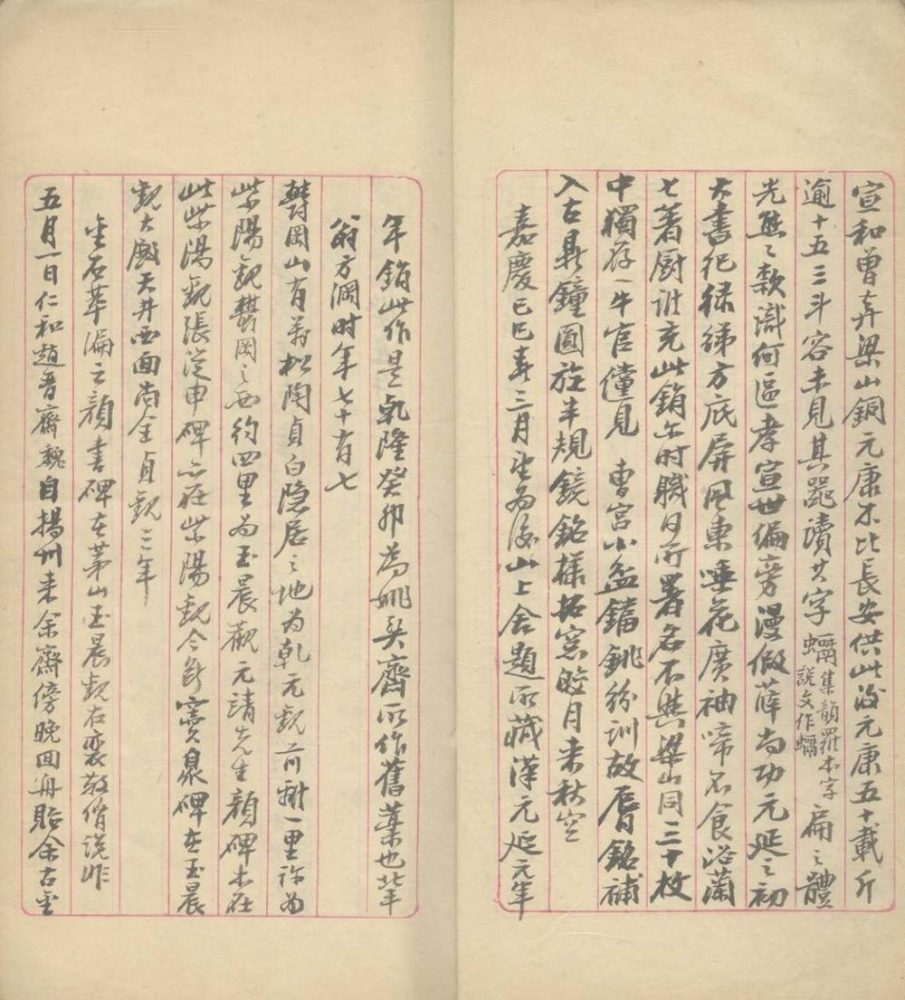 宣和曾弆梁山銅元康不比長安供此後元康五十載斤
逾十五三斗容未見其器讀其字蠲集韻羅本字說文作蠲扁之體
光熊之款識何區孝宣世偏旁漫倣薛尚功元延之初
大書祀綠綈方底屏風東唾花廣袖啼不食沿蕭
七著廚誰充此銷乍時職日所署名不與梁山同三十枚
中獨存一牛官僅見曹宮小盆鐈銚紛訓故脣銘補
入古鼎鐘圓旋半規鏡銘樣拓窓皎月來秋空
嘉慶己巳春三月望為後山上舍題所藏漢元延元年
年銷此作是乾隆癸卯為姚吳齋所作舊藁也北平
翁方綱時年七十有七
鬱岡山有古松陶貞白隱居之地為乾元觀前行一里許為
紫陽觀鬱岡之西約四里為玉晨觀元靖先生顏碑不在
此紫陽觀張從申碑亦在紫陽觀今斷竇泉碑在玉晨
觀大殿天井西面尚全貞觀二年
金石萃編云顏書碑在茅山玉晨觀右裴敬僧說非
五月一日仁和趙晉齋魏自揚州來余齋傍晚回舟貽余古金